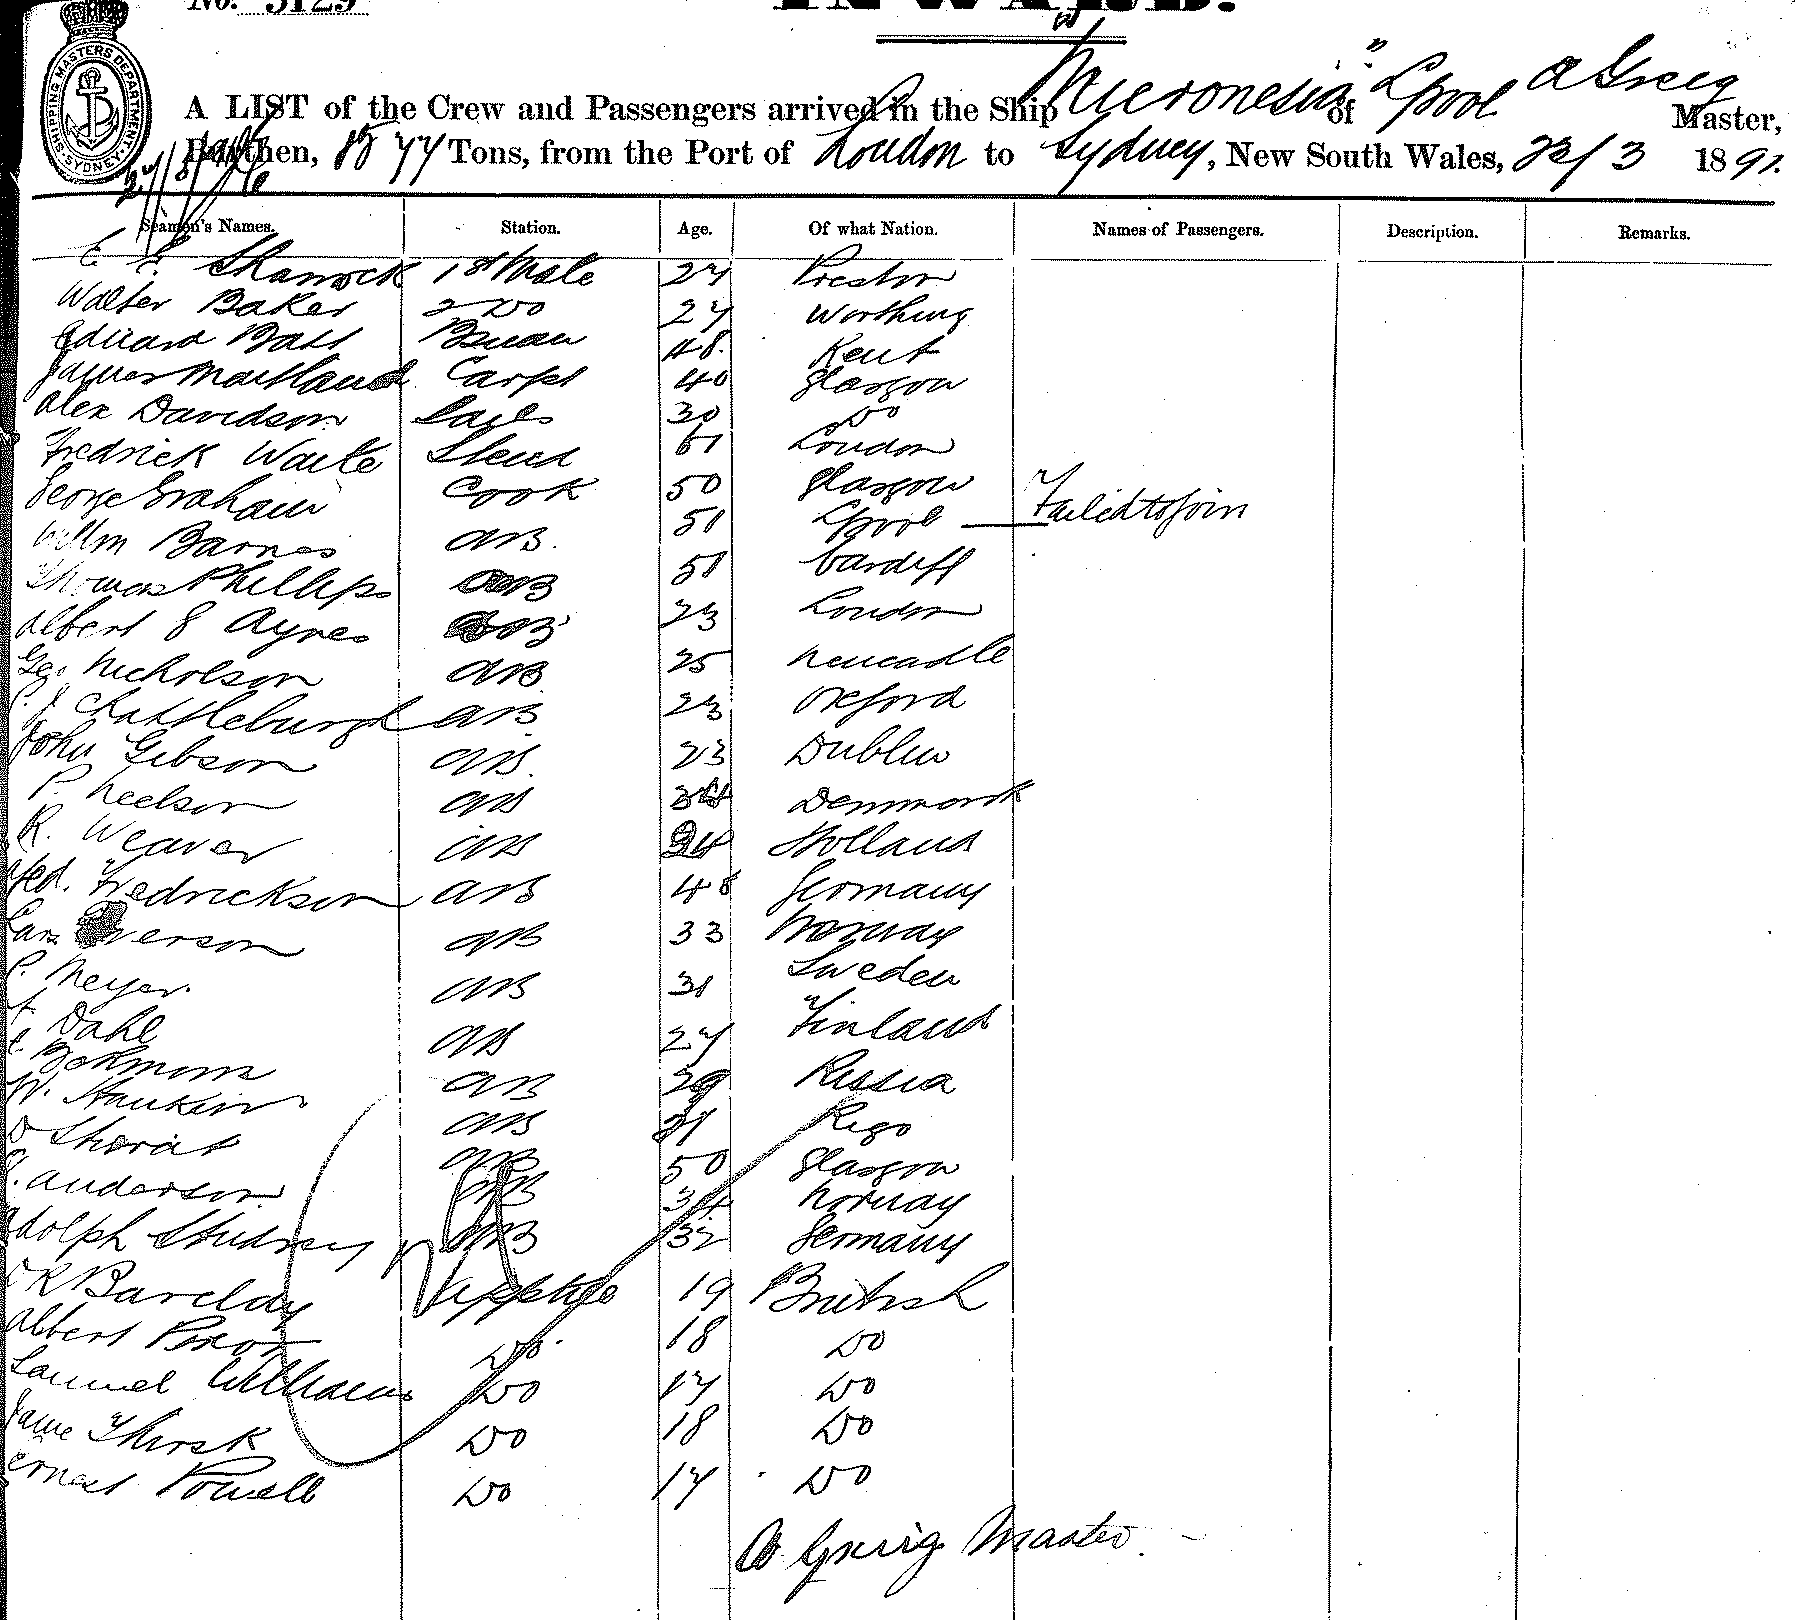 No. 3129
INWARD.
SHIPPING MASTERS DEPARTMENT SYDNEY
A LIST of the Crew and Passengers arrived in the Ship "Micronesia" of Lpool A Greig Master,
Burthen, 1577 Tons, from the Port of London to Sydney, New South Wales, 1891.
Seamen's Names. Station. Age. Of what Nation. Names of Passengers. Description. Remarks.
1st Mate 27 Preston
Walter Baker 2 Do 27 Worthing
Edward Ball Bman 48 Kent
James Maitland Carpt 40 Glasgow
Alex Davidson Sails 30 Do
Fredrick Waite Stewd 61 London
George Graham Cook 50 Glasgow
Willm Barnes AB. 51 Lpool Failed to join
Thomas Phillips AB 51 Cardiff
Albert E Ayres AB 23 London
Geo. Nicholson AB 25 Newcastle
Chattleburgh AB 23 Oxford
John Gibson AB. 23 Dublin
P. Neelson AB Denmark
R. Weaver AB Holland
Fred. Fredrickson AB 48 Germany
Lars Iverson AB 33 Norway
P. Meyer. AB 31 Sweden
Dahl AB 27 Finland
AB 29 Russia
W. Hankin AB Riga
AB 50 Glasgow
Anderson AB 34 Norway
Adolph AB 32 Germany
R Barclay Apptice 19 British
Albert Do 18 Do
Samuel Williams Do 17 Do
Jame Thirsk Do 18 Do
Ernest Powell Do 17 Do
A Greig Master